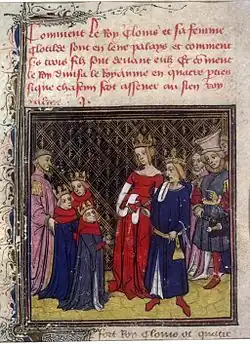 Comment le Roy Clouis et sa femme
Clotilde sont en leur palays et comment
ses trois filz sont deuant eulx Et coment
le Roy diuisa le Royaume en quatre pties
si que chascun soit assener au sien
fort Roy Clouis et quatre